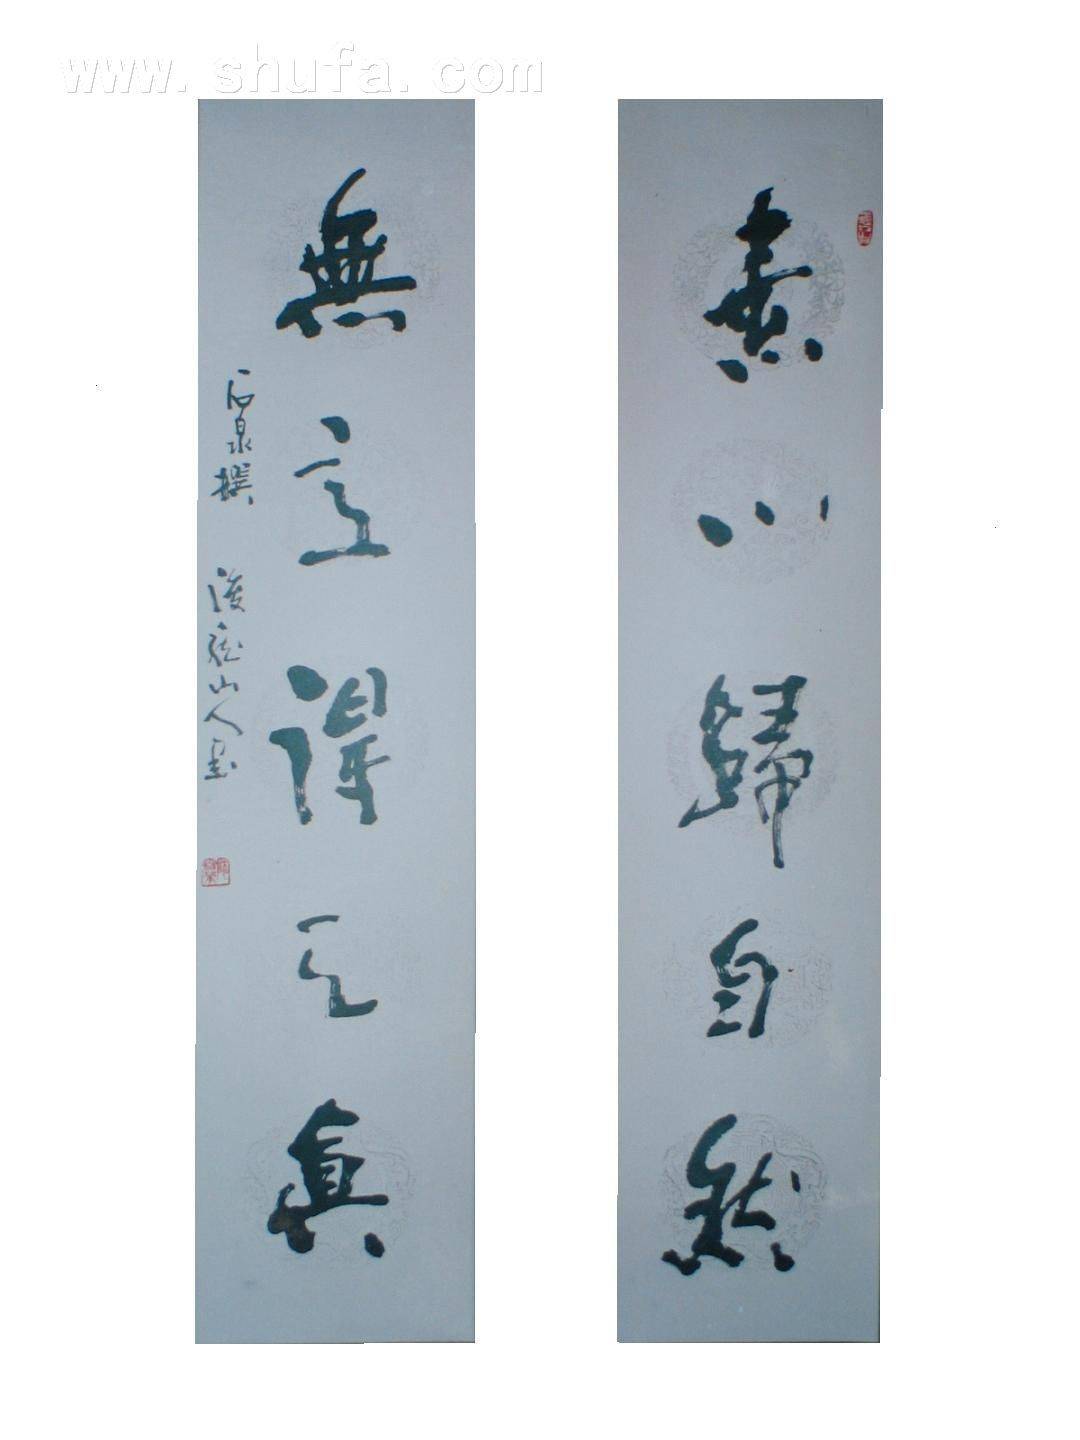 www.shufa.com
素心歸自然
無言得天真
石泉撰
山人書